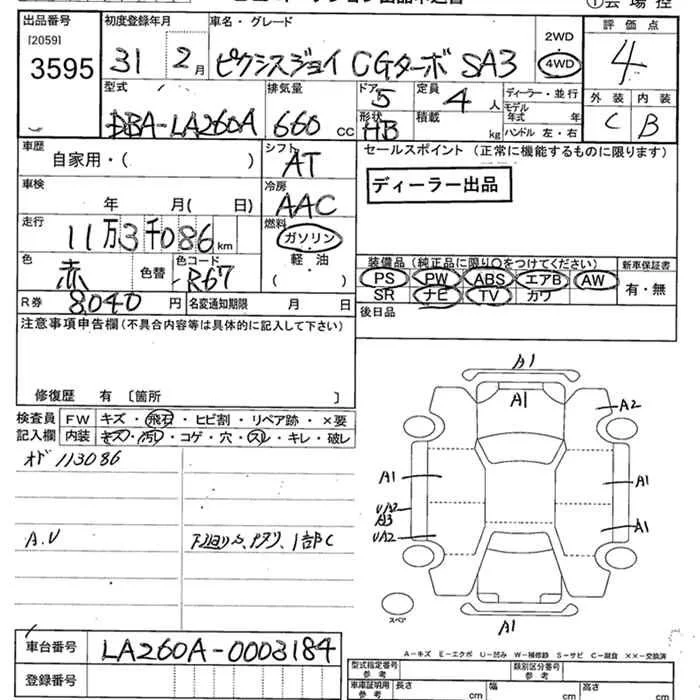 ①会場控
出品番号 初度登録年月 車名・グレード 2WD 評価点
[2059]
3595 31 2月 ピクシスジョイ CGターボ SA3 4WD 4
型式 排気量 ドア 定員 ディーラー・並行 外装 内装
DBA-LA260A 660cc 5 4人 モデル年式 年 C B
形状 積載
HB kg ハンドル 左・右
車歴 シフト セールスポイント(正常に機能するものに限ります)
自家用・( ) AT
ディーラー出品
車検 冷房
年 月( 日) AAC
走行 燃料
11万3千086km ガソリン
色 色替 色コード 軽・油
赤 R67 ( )
装備品(純正品に限り〇をつけてください) 新車保証書
PS PW ABS エアB AW 有・無
SR ナビ TV カワ
R券 8,040円 名変通知期限 月 日 後日品
注意事項申告欄(不具合内容等は具体的に記入して下さい)
修復歴 有 〔箇所 〕
検査員 FW キズ・飛石・ヒビ割・リペア跡・×要
記入欄 内装 キズ・汚レ・コゲ・穴・スレ・キレ・破レ
オド 113086
A.V
1部C
A1
A1
A2
A1 A1
A3
A1
スペア
A1
A-キズ E-エクボ U-凹み W-補修跡 S-サビ C-腐食 ××-交換済
車台番号 LA260A-0003184
登録番号
型式指定番号 参考 類別区分番号 参考
車庫証明用 参考 長さ cm 幅 cm 高さ cm